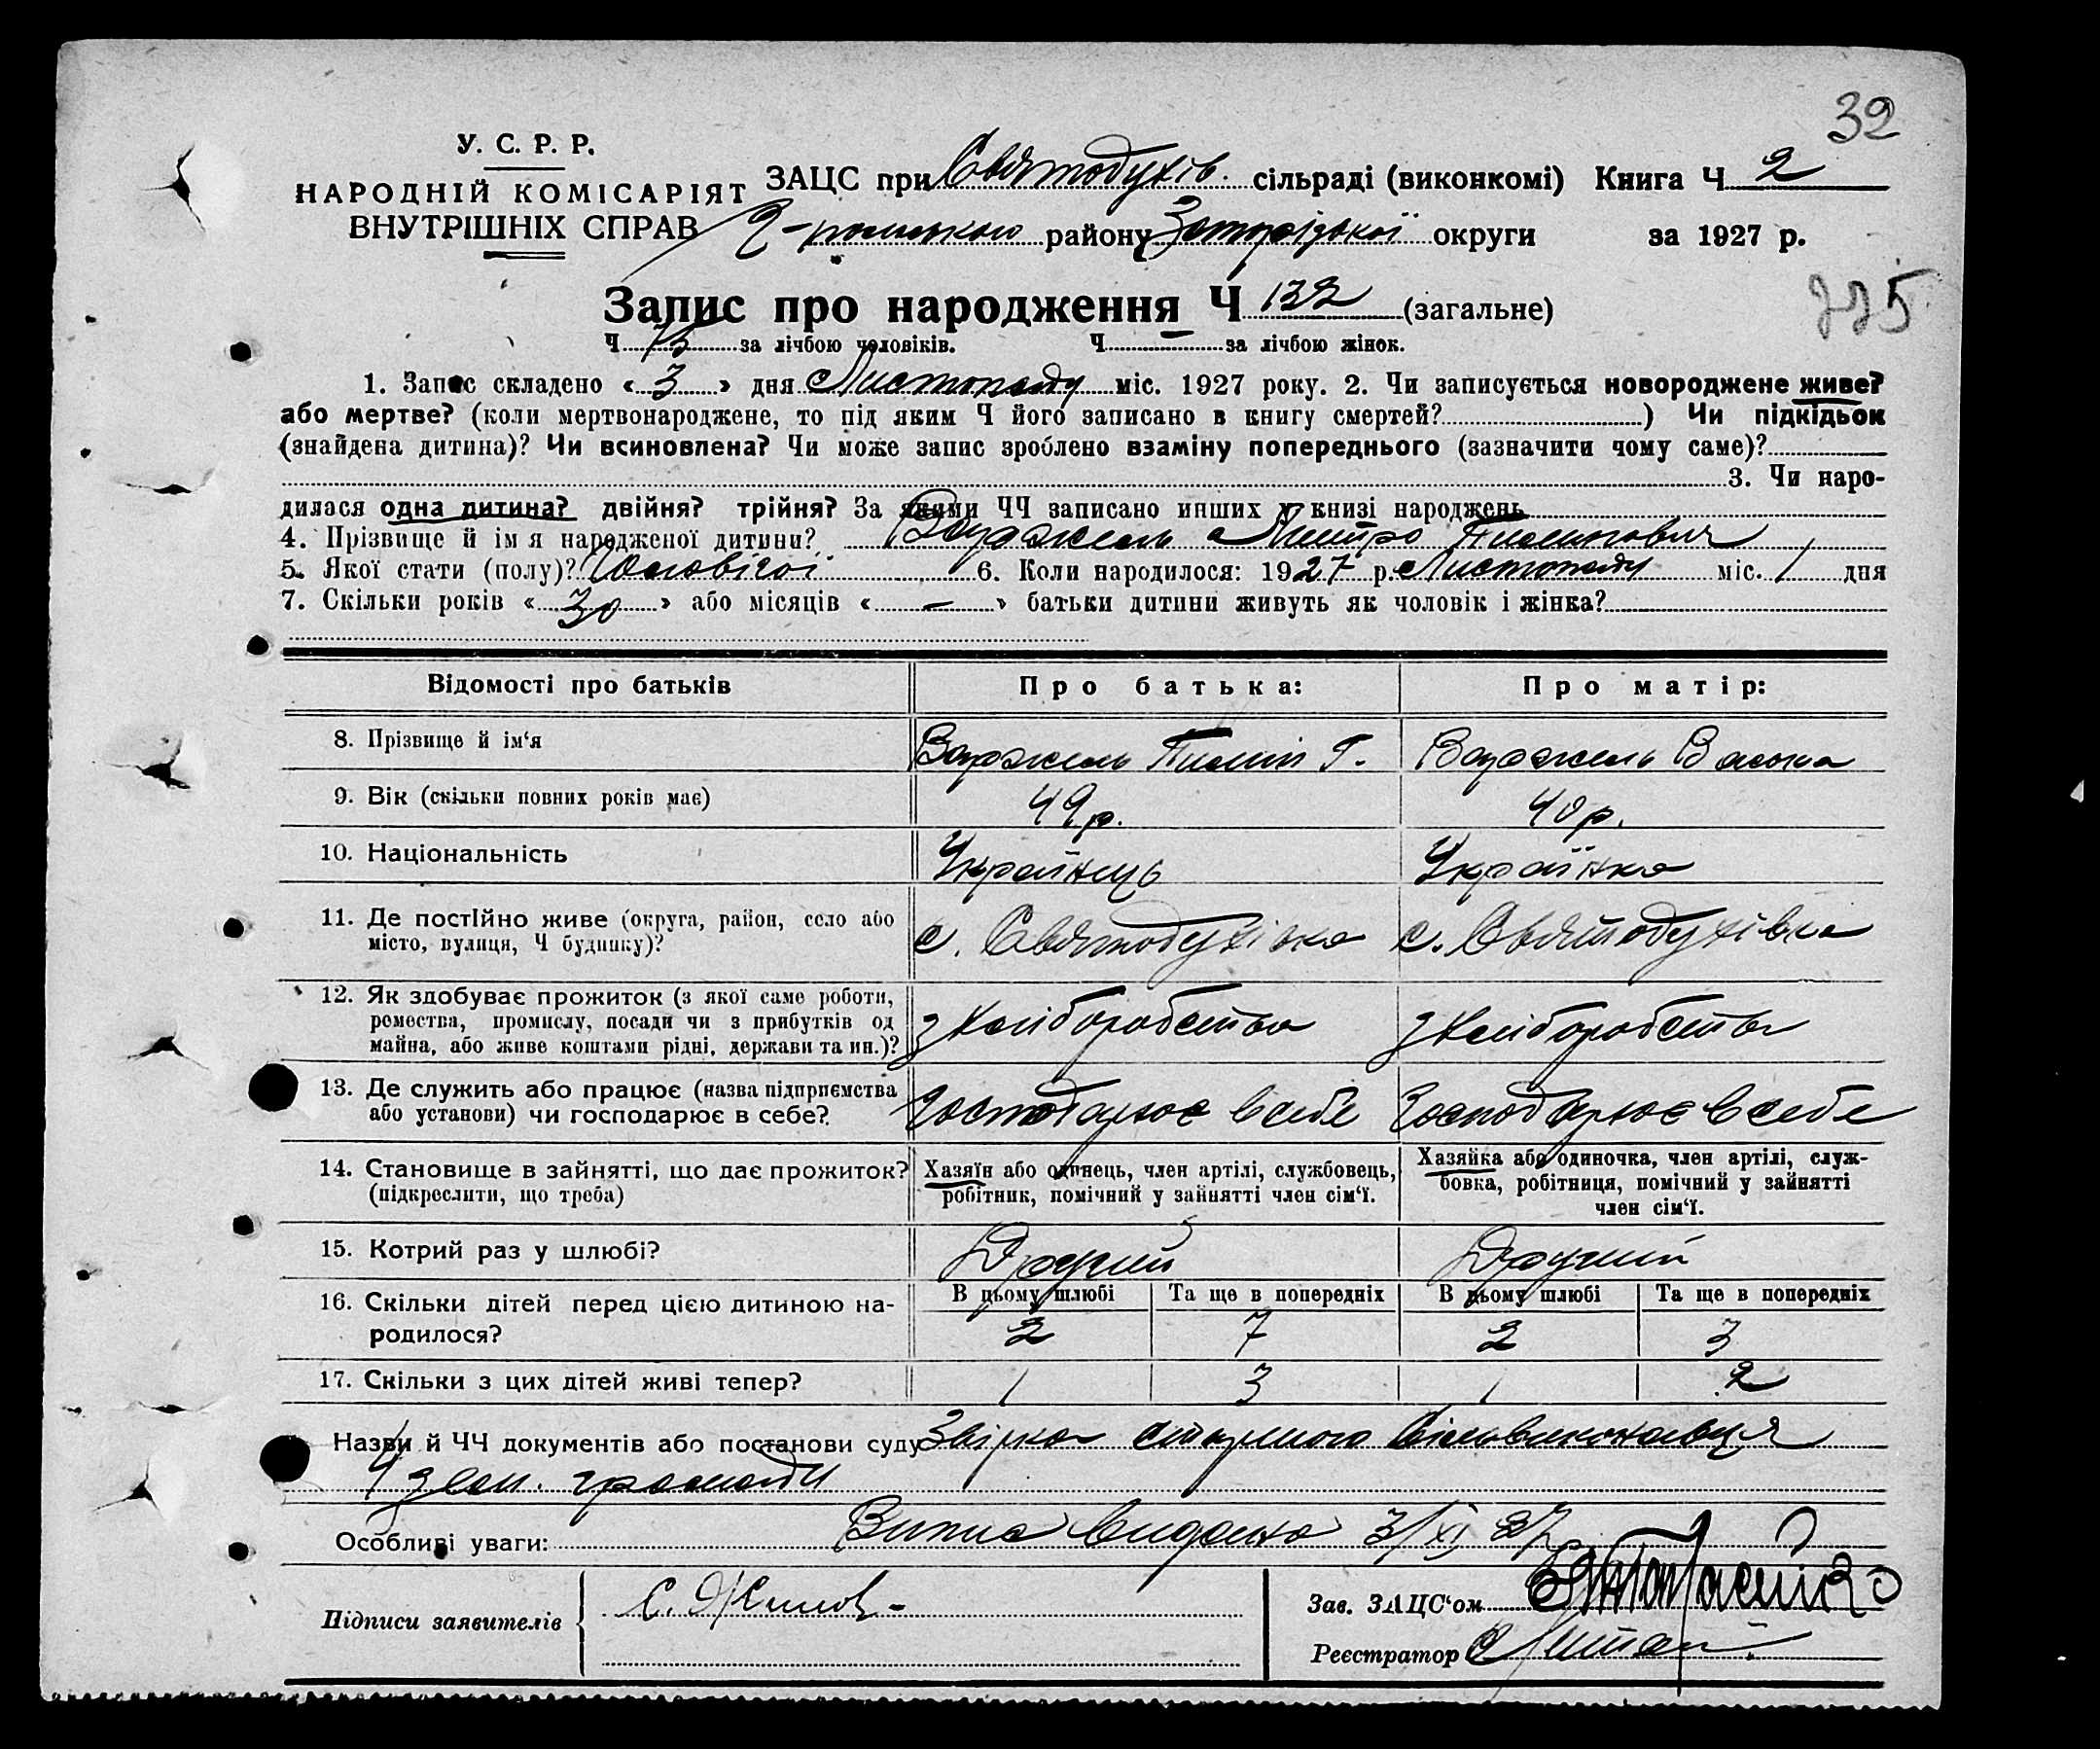 32
У. С. Р. Р.
НАРОДНІЙ КОМІСАРІЯТ
ВНУТРІШНІХ СПРАВ
ЗАЦС при Святодухів. сільраді (виконкомі) Книга Ч 2
району Запорізької округи за 1927 р.
Запис про народження Ч 132 (загальне)
225
Ч 75 за лічбою чоловіків. Ч — за лічбою жінок.
1. Запис складено « 3 » дня Листопаду міс. 1927 року. 2. Чи записується новороджене живе?
або мертве? (коли мертвонароджене, то під яким Ч його записано в книгу смертей? ) Чи підкідьок
(знайдена дитина)? Чи всиновлена? Чи може запис зроблено взаміну попереднього (зазначити чому саме)?
3. Чи наро-
дилася одна дитина? двійня? трійня? За якими ЧЧ записано инших у книзі народжень
4. Прізвище й ім я народженої дитини? Дмитро Пилипович
5. Якої стати (полу)? Чоловічої 6. Коли народилося: 1927 р. Листопаду міс. 1 дня
7. Скільки років « 30 » або місяців « — » батьки дитини живуть як чоловік і жінка?
Відомості про батьків Про батька: Про матір:
8. Прізвище й ім‘я Пилип Г.
9. Вік (скільки повних років має) 49 р. 40 р.
10. Національність Українець Українка
11. Де постійно живе (округа, район, село або
місто, вулиця, Ч будинку)? с. Святодухівка с. Святодухівка
12. Як здобуває прожиток (з якої саме роботи,
ремества, промислу, посади чи з прибутків од
майна, або живе коштами рідні, держави та ин.)? з хліборобства з хліборобства
13. Де служить або працює (назва підприємства
або установи) чи господарює в себе? Господарює в себе Господарює в себе
14. Становище в зайнятті, що дає прожиток?
(підкреслити, що треба)
Хазяїн або одинець, член артілі, службовець,
робітник, помічний у зайнятті член сім‘ї.
Хазяйка або одиночка, член артілі, служ-
бовка, робітниця, помічний у зайнятті
член сім‘ї.
15. Котрий раз у шлюбі? Другий Другий
16. Скільки дітей перед цією дитиною на-
родилося?
В цьому шлюбі Та ще в попередніх В цьому шлюбі Та ще в попередніх
2 7 2 3
17. Скільки з цих дітей живі тепер? 1 3 1 2
Назви й ЧЧ документів або постанови суду Звірка сільвиконавця
зем. громади
Особливі уваги: Випис видано 3/XI 27
Підписи заявителів
Зав. ЗАЦС‘ом
Реєстратор